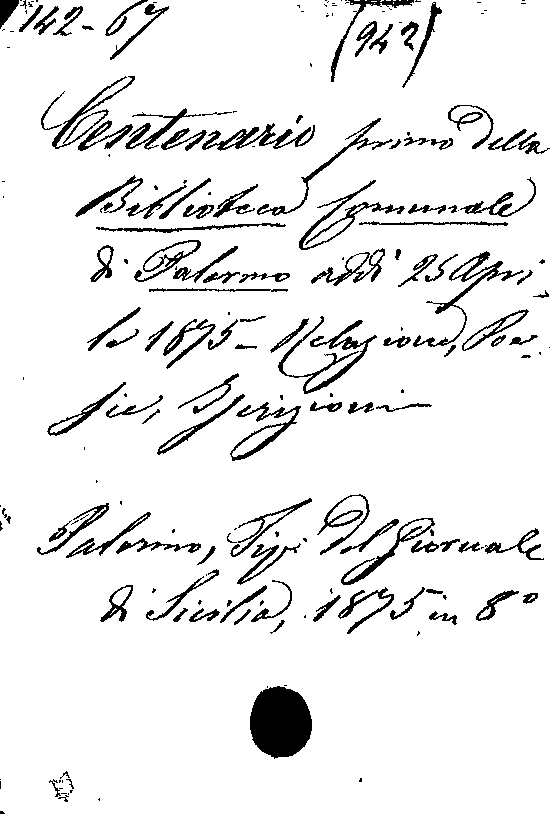 142-67 (942)
Centenario primo della
Biblioteca Comunale
di Palermo addì 25 Apri-
le 1875 - Relazione, Poe-
sie, Iscrizioni
Palermo, Tip. del Giornale
di Sicilia, 1875 in 8º